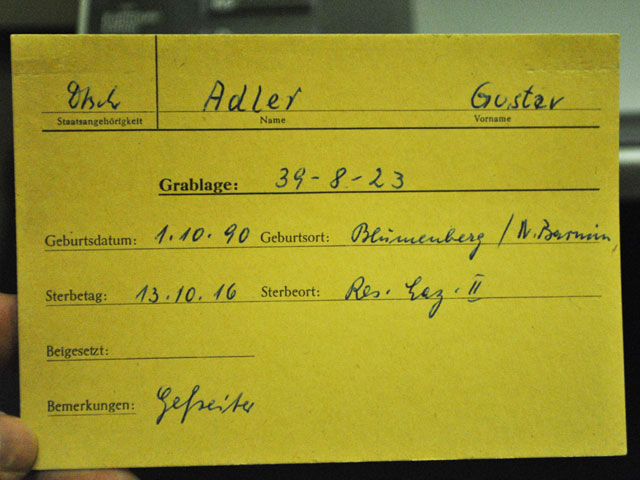 Dtsch Adler Gustav
Staatsangehörigkeit Name Vorname
Grablage: 39-8-23
Geburtsdatum: 1.10.90 Geburtsort: Blumenberg / N. Barnim,
Sterbetag: 13.10.16 Sterbeort: Res. Laz. II
Beigesetzt:
Bemerkungen: Gefreiter